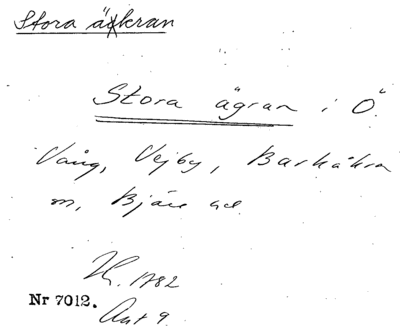 Stora äkran
Stora ägran i Ö.
Vång, Vejby, Barkåkra
sn, Bjäre hd
H. 1782
Nr 7012.
Akt 9